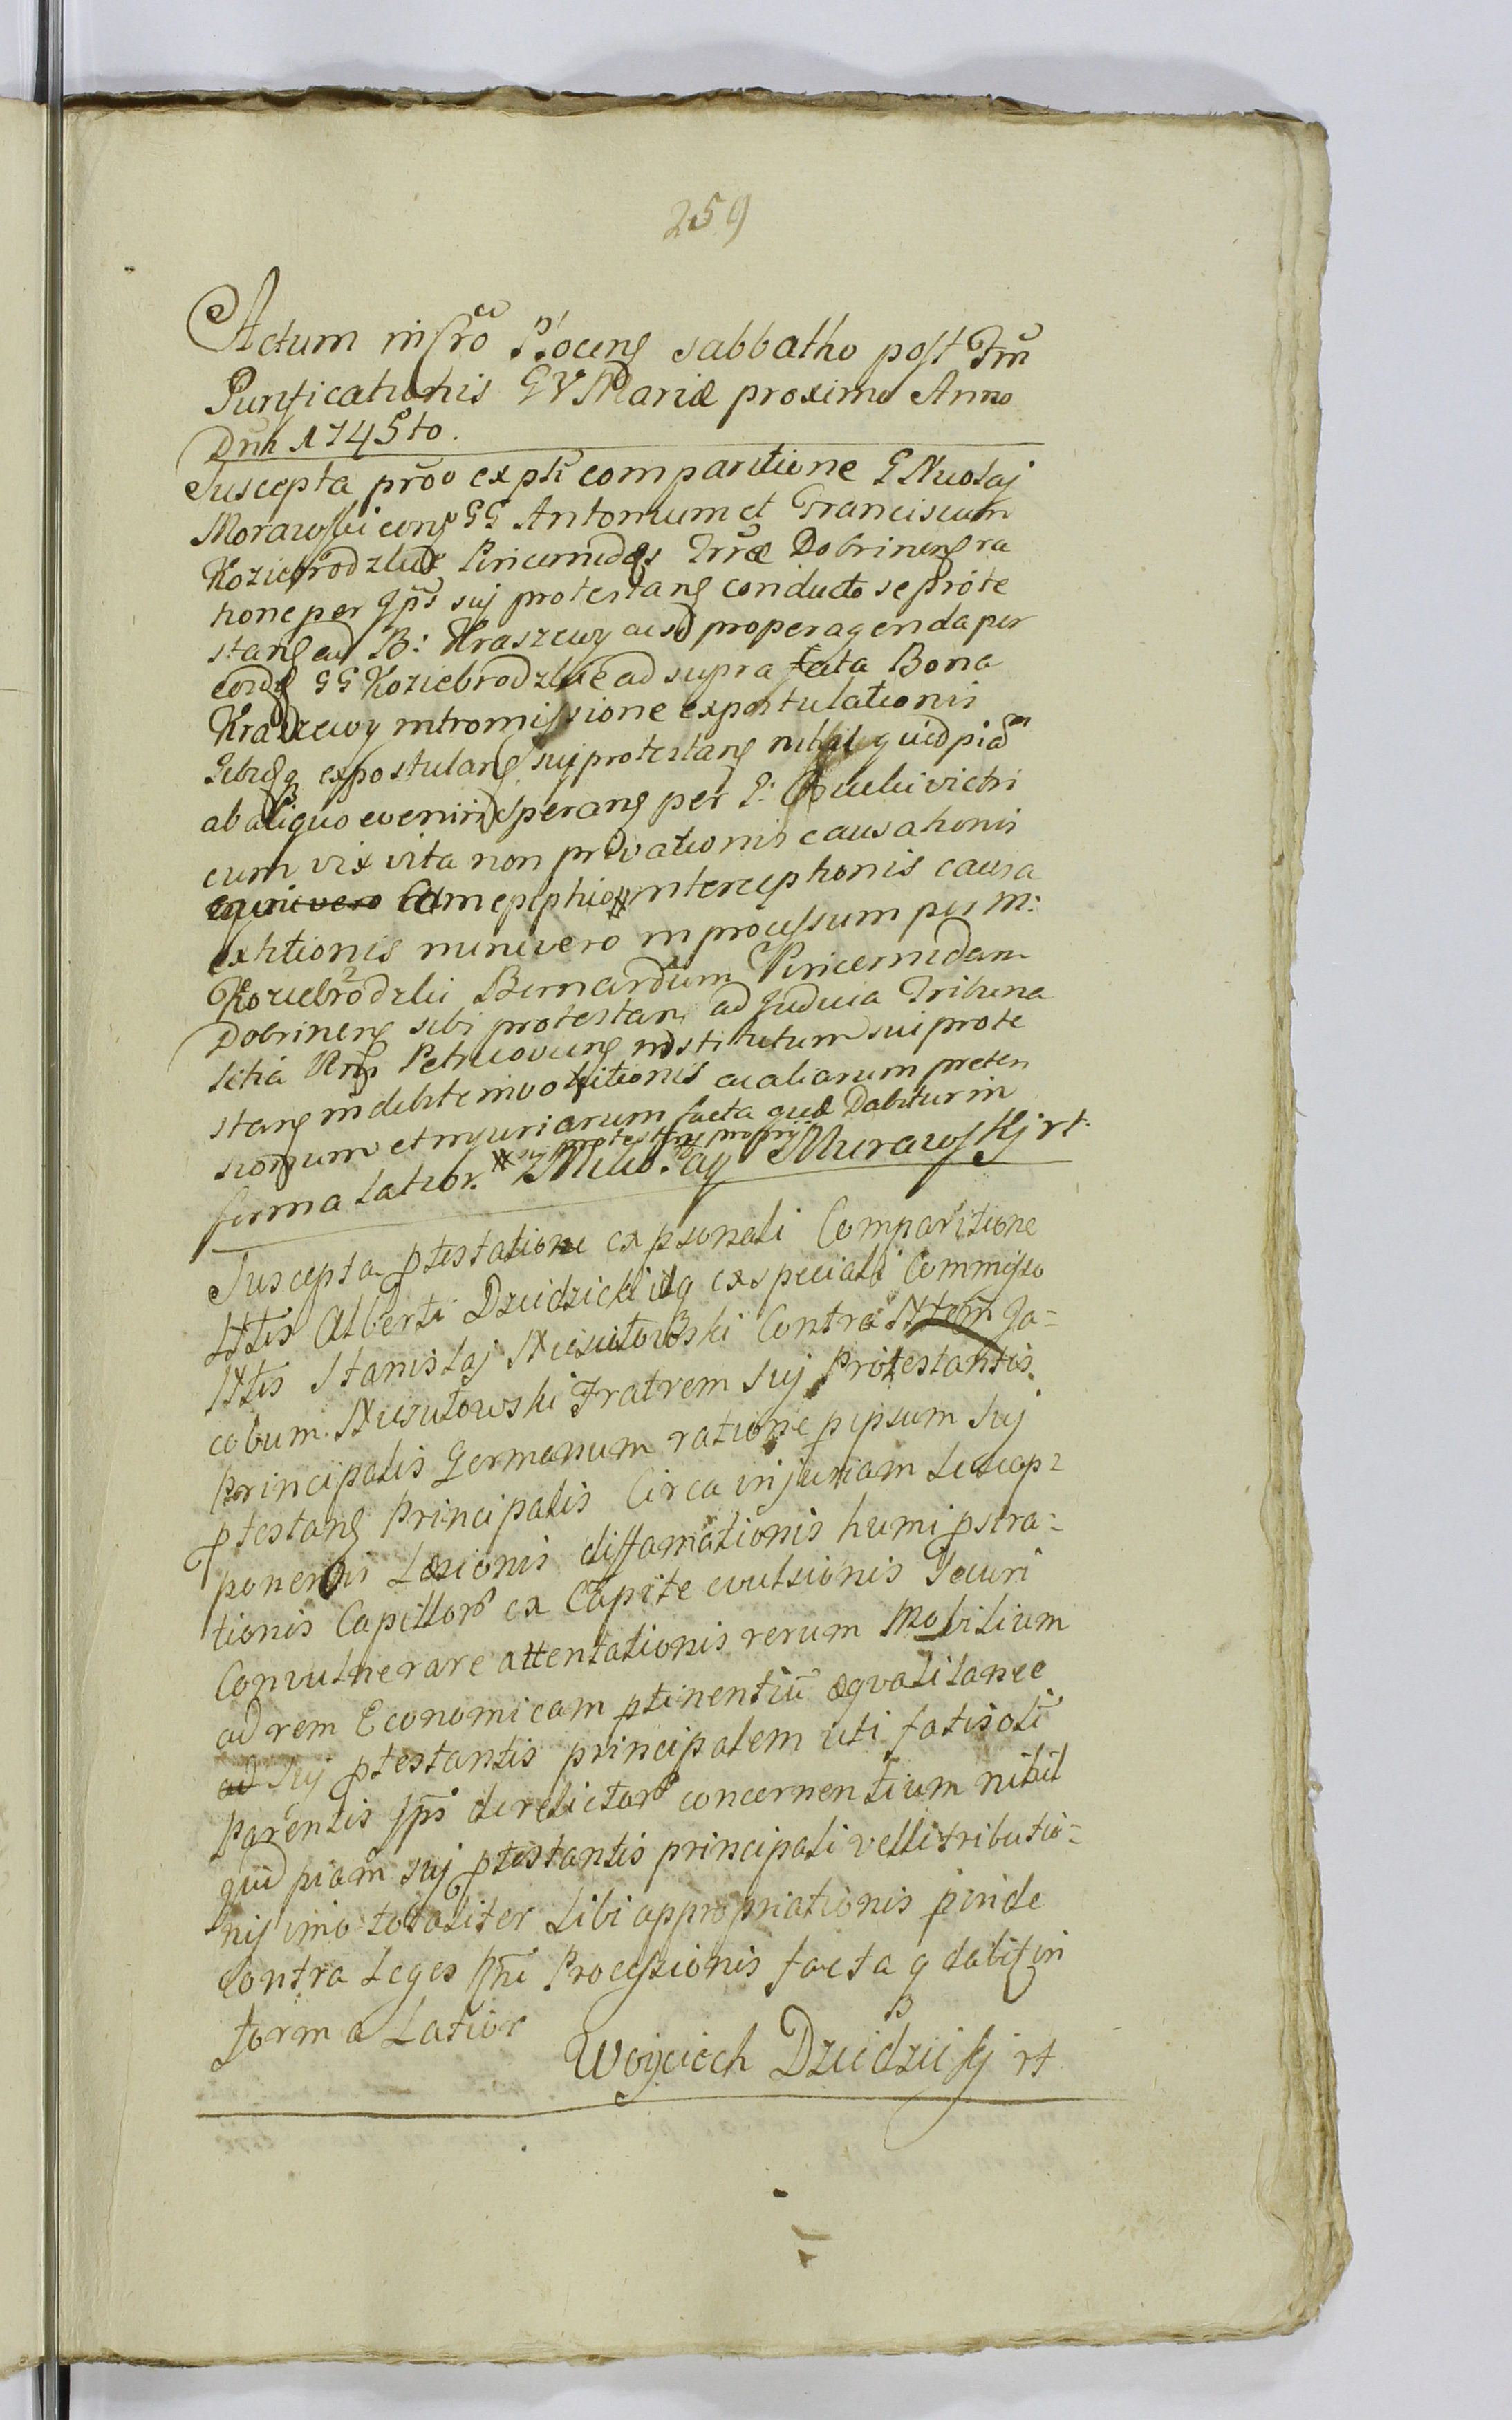 259
Actum in Cro Płocens sabbatho post Fm
Purificationis BVMariæ proximo Anno
Dnni 1745to.
Suscepta pro͞o ex pli comparitione G Nicolaj
Morawski cons GG Antonium et Franciscum
Koziebrodzkie Pincernides Trræ Dobrinens ra
tione per Jps suj protestans conducto se prote
stans ad B: Kraszewy ac sd pro peragenda per
eosdg GG Koziebrodzkie ad supra fata Bona
Kraszewy intromissione expostulationis
expostulans suj protestans nihil quidpiam
ab aliquo evenire sperans per G:
cum vix vita non privationis causationis
Cum epiphio # interceptionis causa
extitionis minivero in processum per M:
Koziebrodzki Bernardum Pincernidam
Dobrinens sibi protestan ad Juducia Tribuna
litia Rnj Petricoviens institutum sui prote
stans indebite involutionis ac aliarum preten
sionum et injuriarum facta quæ Dabitur in
forma Latior. # suj protestans proprij Mikołay Murawskj rt.
Suscepta ptestatione ex psonali Comparitione
Nttis Alberti Dzidzicki itq ex speciali Commisso
Nttis Stanislaj Niesiutowski Contra Nttem Ja=
cobum Niesiutowski Fratrem suj Protestantis
Principalis Germanum ratione p ipsum suj
ptestans Principalis Circa injuriam
ponentis Læsionis diffamationis humi pstra=
tionis Capillorb ex Capite evulsionis Securi
Convulnerare attentationis rerum Mobilium
ad rem Economicam ptinentiu͞ æqvalitance
ad suj ptestantis principalem uti fatis oli͞
Parentis Jps derelictorb concernentium nihil
quidpiam suj ptestantis principali velli tributio=
nis imo totaliter sibi appropriationis pinde
Contra Leges Rni Processionis facta q dabit in
forma Latior
Woyciech Dzidzickj rt